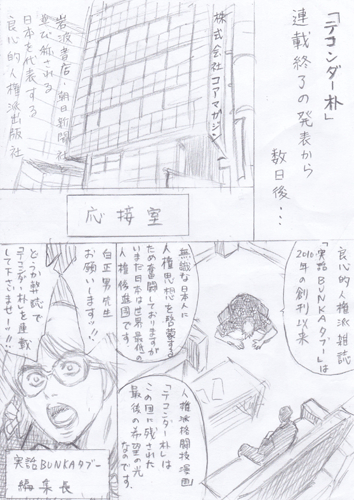 「テコンダー朴」
連載終了の発表から
数日後・・・
株式会社コアマガジン
岩波書店、朝日新聞社と
並び称される
日本を代表する
良心的人権派出版社
応接室
良心的人権派雑誌
「実話BUNKAタブー」は
2010年の創刊以来
無識な日本人に
人権思想を啓蒙する
ため奮闘しておりますが
いまだ日本は世界最低の
人権後進国です。
人権派格闘技漫画
「テコンダー朴」は
この国に残された
最後の希望の光
なのです。
白正男先生
お願いします!!
どうか弊誌で
「テコンダー朴」を連載
して下さいませー!!
実話BUNKAタブー
編集長